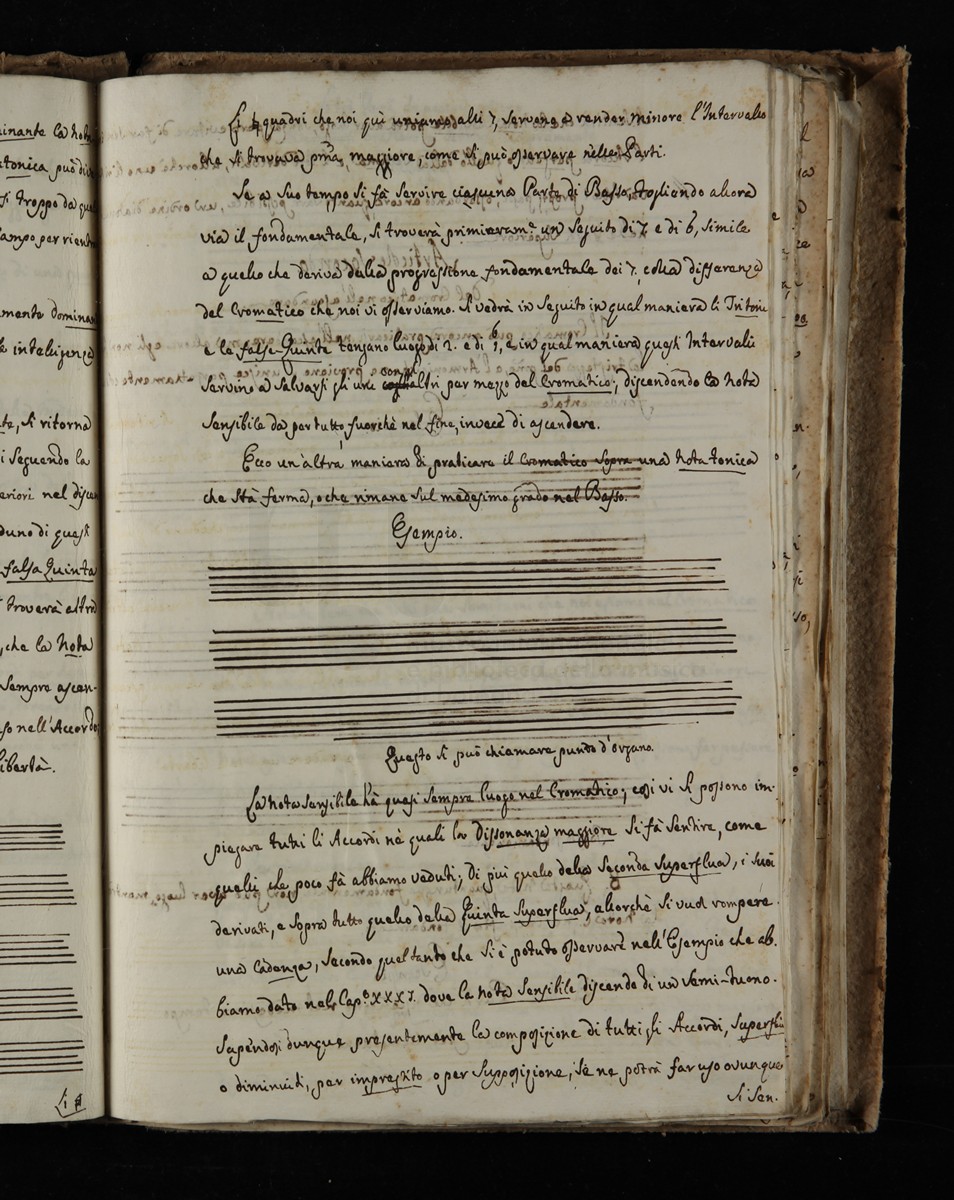 inante la Nota
tonica può di
si troppo da qu
campo per rient
mente domina
e inteligenza
te, si ritorna
i Seguendo la
eriori nel disce
duno di questi
falsa Quinta
troverà altro
, che la Nota
Sempre ascen-
so nell'Accordo
libertà.
Li ♮
Li ♮ quadri che noi quì uniamo alli 7, servono a render minore l'Intervallo
che si trovava prma maggiore, come si può osservare nelle Parti.
Se a suo tempo si fà servire ciascuna Parte di Basso, togliendo allora
via il fondamentale, si troverà primieramte un Seguito di 7. e di 6, simile
a quello che deriva dalla progressione fondamentale dei 7. colla differenza
del Cromatico che noi vi osserviamo. Si vedrà in Seguito in qual maniera li Tritoni
e le false Quinte tengano luogo di 7. e di 6, e in qual maniera questi Intervalli
servino a Salvarsi gli uni cogli altri per mezzo del Cromatico; discendendo la Nota
Sensibile da per tutto fuorchè nel fine, invece di ascendere.
Ecco un'altra maniera di praticare il Cromatico sopra una Nota tonica
che stà ferma, o che rimane sul medesimo grado nel Basso.
Esempio.
Questo si può chiamare punto d'Organo.
La Nota Sensibile hà quasi sempre luogo nel Cromatico; così vi si possono im-
piegare tutti li Accordi nè quali la dissonanza maggiore si fà sentire, come
quelli che poco fà abbiamo veduti; di più quello della Seconda Superflua, i suoi
derivati, e sopra tutto quello della Quinta Superflua, allorchè si vuol rompere
una Cadenza, secondo quel tanto che si è potuto osservare nell'Esempio che ab.
biamo dato nel Capo. XXXI. dove la Nota Sensibile discende di un Semi-tuono.
Sapendosi dunque presentemente la composizione di tutti gli Accordi, Superflui
o diminuiti, per imprestito o per Supposizione, se ne potrà far uso ovunque
Si Sen.